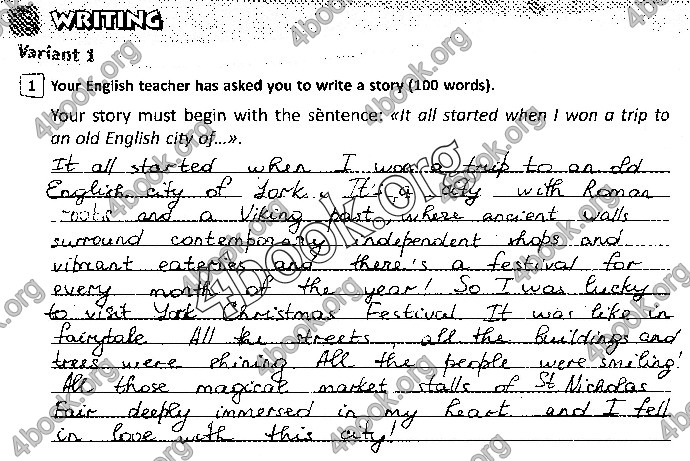 WRITING
Variant 1
1 Your English teacher has asked you to write a story (100 words).
Your story must begin with the sentence: «It all started when I won a trip to
an old English city of...».
It all started when I won a trip to an old
English city of York. It's a city with Roman
roots and a Viking past, where ancient walls
surround contemporary independent shops and
vibrant eateries and there's a festival for
every month of the year! So I was lucky
to visit York Christmas Festival. It was like in
fairytale. All the streets, all the buildings and
trees were shining. All the people were smiling!
All those magical market stalls of St Nicholas
Fair deeply immersed in my heart and I fell
in love with this city!
4book.org